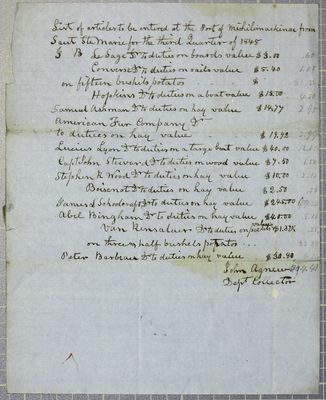 List of articles to be entered at the Port of Michilimackinac from
Saut Ste Marie for the third quarter of 1845
J B Le Sage Dr to duties on boards value $3.00
Converse Dr to duties on rails value $5.40
on fifteen bushels potatos $
Hopkins Dr to duties on a boat value $15.00
Samuel Ashman Dr to duties on hay value $14.77
American Fur Company Dr
to duties on hay value $17.92
Lucius Lyon Dr to duties on a large boat value $40.00
Capt John Steverd Dr to duties on wood value $7.50
Stephen R Wood Dr to duties on hay value $10.00
Boisenot Dr to duties on hay value $2.50
James L Schoolcraft Dr to duties on hay value $245.00
Abel Bingham Dr to duties on hay value $40.00
Van Rensalaer Dr to duties on value $1.37½
on three & half bushels potatos ...
Peter Barbeau Dr to duties on hay value $30.40
John Agnew
Dept Collector